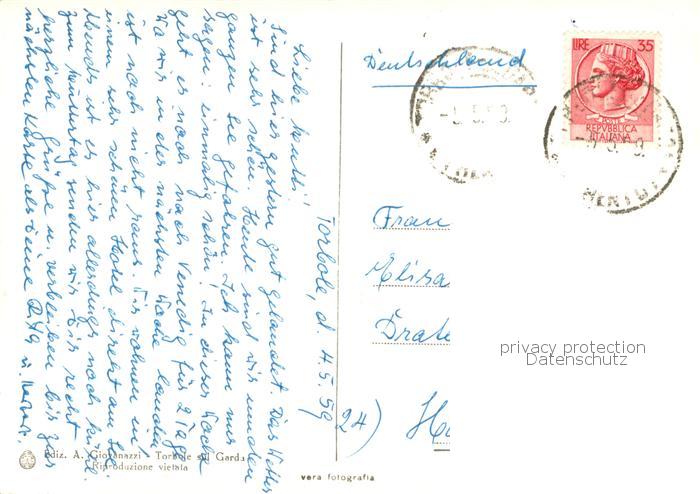 Torbole, d. 4.5.59
Liebe Mutti!
Sind hier gestern gut gelandet. Das Wetter
ist sehr schön. Heute sind wir
gefahren. Ich kann nur
sagen: einmalig schön! In dieser Woche
geht es noch nach Venedig für 2 Tage.
Wo wir in der nächsten Woche landen
ist noch nicht raus. Wir wohnen in
einem sehr schönen Hotel direkt am See.
Abends ist es hier allerdings noch kühl.
Zum Muttertag senden wir Dir recht
herzliche Grüße u. verbleiben bis zur
nächsten Karte als Deine Rita u.
Deutschland
LIRE 35
POSTE
REPVBBLICA
ITALIANA
Frau
Elisa
24)
privacy protection
Datenschutz
Ediz. A. Giovanazzi - Torbole sul Garda
Riproduzione vietata
vera fotografia